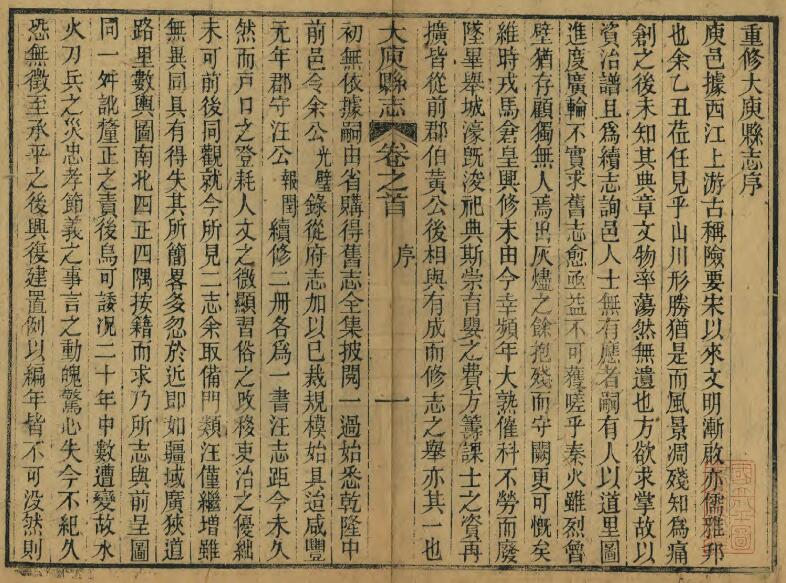 重修大庾縣志序
庾邑據西江上游古稱險要宋以來文明漸啟亦儒雅邦
也余乙丑莅任見乎山川形勝猶是而風景凋殘知為痛
創之後未知其典章文物率蕩然無遺也方欲求掌故以
資治譜且爲續志詢邑人士無有應者嗣有人以道里圖
進度廣輪不實求舊志愈亟益不可獲嗟乎秦火雖烈魯
壁猶存顧獨無人焉出灰燼之餘抱殘而守闕更可慨矣
維時戎馬倉皇興修未由今幸頻年大熟催科不勞而廢
墜畢舉城濠旣浚祀典斯崇育嬰之費方籌課士之資再
擴皆從前郡伯黃公後相與有成而修志之舉亦其一也
大庾縣志
卷之首
序
一
初無依據嗣由省購得舊志全集披閱一過始悉乾隆中
前邑令余公光璧錄從府志加以已裁規模始具迨咸豐
元年郡守汪公報閏續修二冊各爲一書汪志距今未久
然而戶口之登耗人文之微顯習俗之改移吏治之優絀
未可前後同觀就今所見二志余取備門類汪僅繼增雖
無異同具有得失其所簡畧多忽於近即如疆域廣狹道
路里數輿圖南北四正四隅按籍而求乃所志與前呈圖
同一舛訛釐正之責後烏可諉况二十年中數遭變故水
火刀兵之災忠孝節義之事言之動魄驚心失今不紀久
恐無徵至承平之後興復建置例以編年皆不可没然則